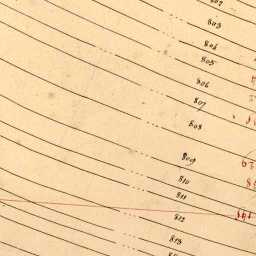 802
803
804
805
806
807
808
809
810
811
812
813